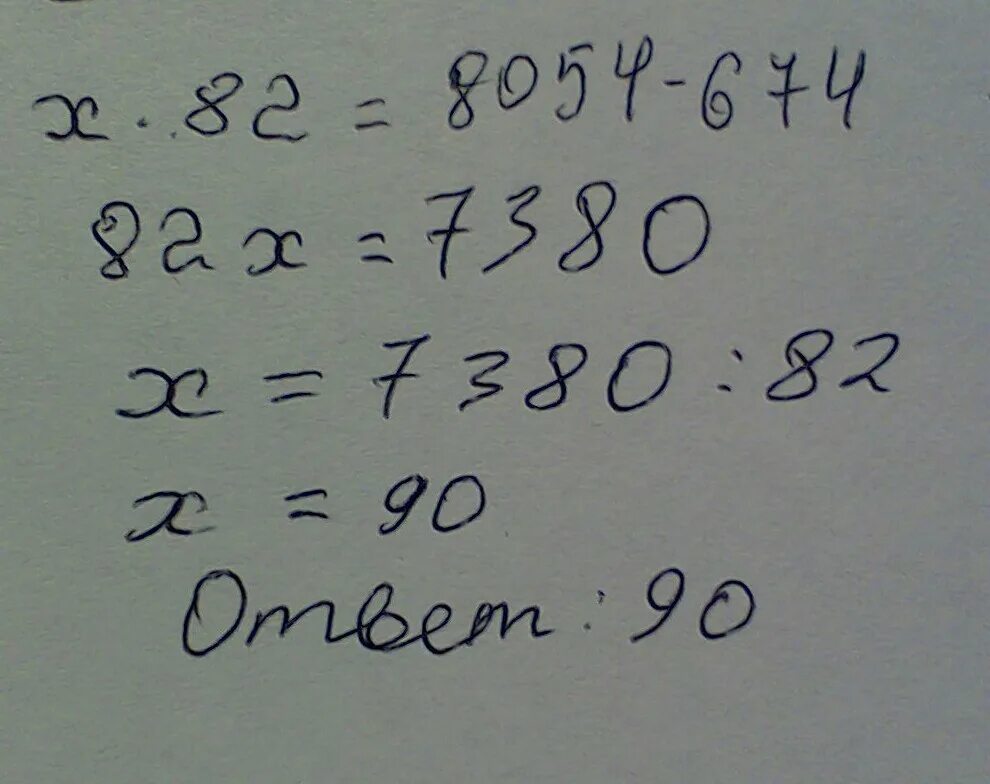 x · 82 = 8054 - 674
82x = 7380
x = 7380 : 82
x = 90
Ответ: 90